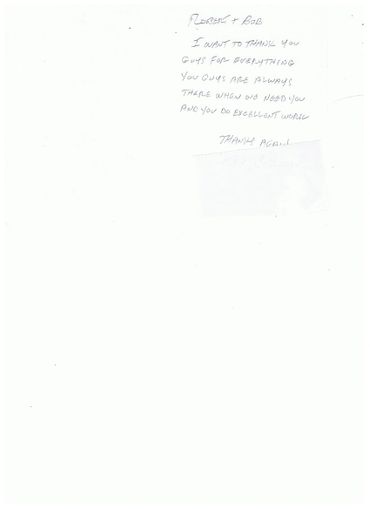 ROBERT + BOB
I WANT TO THANK YOU
GUYS FOR EVERYTHING
YOU GUYS ARE ALWAYS
THERE WHEN DID NEED YOU
AND YOU DO EXCELLENT WORK
THANKS AGAIN